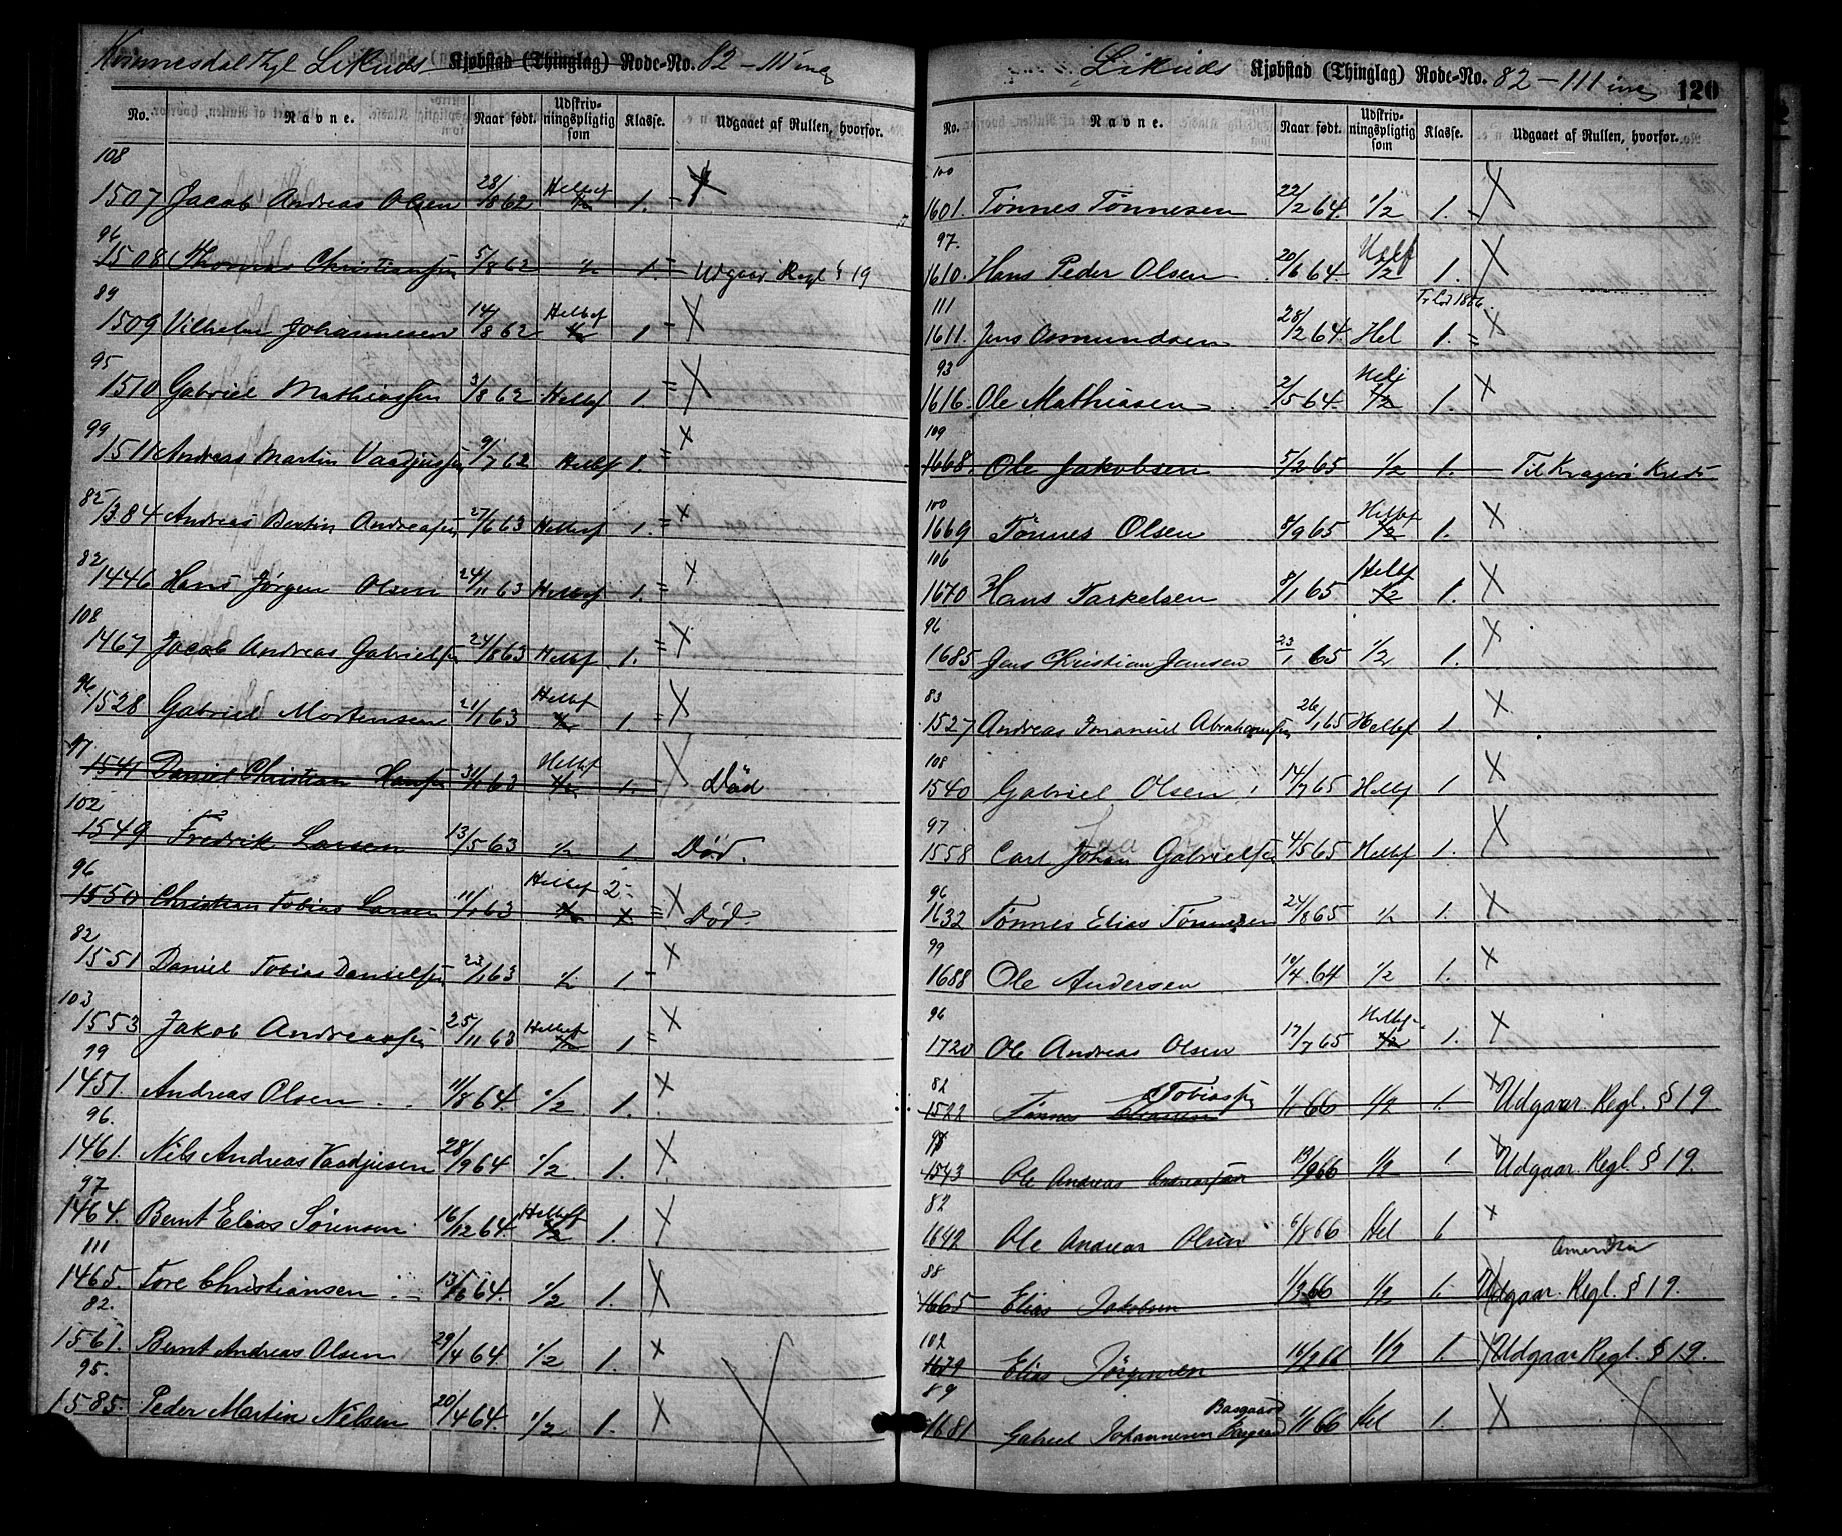 Lekneds Kjøbstad (Thinglag) Rode-No. 82 - 111 inc
No. Navne. Naar født. Udskrivningspligtig som Klasse. Udgaaet af Rullen, hvorfor.
108
1507 Jacob Andreas Olsen 28/8 62 Helbef 1/2 1. X
96
1508 Thomas Christiansen 5/8 62 1/2 1. Udgaar Regl § 19
89
1509 Vilhelm Johannesen 14/8 62 Helbef 1/2 1 X
95
1510 Gabriel Mathiassen 3/8 62 Helbef 1 X
99
1511 Andreas Martin 9/7 62 Helbef 1. X
82
1384 Andreas Bertin Andreassen 27/6 63 Helbef 1. X
82
1446 Hans Jørgen Olsen 24/11 63 Helbef 1. X
108
1467 Jacob Andreas Gabrielsen 24/8 63 Helbef 1. X
96
1528 Gabriel Mortensen 21/1 63 Helbef 1/2 1. X
97
1541 Daniel Christian Hansen 31/1 63 Helbef 1/2 1. Død
102
1549 Fredrik Larsen 13/5 63 1/2 1 Død.
96
1550 Christian Tobias Larsen 11/1 63 Helbef 1/2 2- X Død.
82
1551 Daniel Tobias Danielsen 23/1 63 1/2 1 X
103
1553 Jakob Andreassen 25/11 63 Helbef 1/2 1. X
99
1451. Andreas Olsen 11/8 64. 1/2 1. X
96.
1461. Nils Andreas Vaadjusen 28/9 64 1/2 1. X
97
1464. Bernt Elias Sørensen 16/12 64. Helbef 1/2 1. X
111
1465. Tore Christiansen 13/6 64. 1/2 1. X
82.
1561. Bernt Andreas Olsen 29/4 64. 1/2 1. X
95.
1585. Peder Martin Nilsen 20/4 64. 1/2 1. X
Kjøbstad (Thinglag) Rode-No. 82 - 111 inc 120
No. Navne. Naar født. Udskrivningspligtig som Klasse. Udgaaet af Rullen, hvorfor.
100
1601. Tønnes Tønnesen 22/2 64. 1/2 1. X
97.
1610. Hans Peder Olsen 20/6 64. 1/2 1. X
111
1611. Jens Osmundsen 28/2 64. Hel 1. X
93
1616. Ole Mathiasen 2/5 64. 1/2 1. X
109
1668. Ole Jakobsen 5/2 65 1/2 1. Til Kragerø Kreds
100
1669 Tønnes Olsen 8/9 65 Helbef 1/2 1. X
106
1670 Hans Tarkelsen 8/1 65 Helbef 1/2 1. X
96
1685 Jens Christian Jansen 23/1 65 1/2 1. X
83
1527 Andreas Imanuel Abrahamsen 26/1 65 Helbef 1. X
108
1540 Gabriel Olsen 14/7 65 Helbf 1 X
97
1558 Carl Johan Gabrielsen 4/5 65 Helbef 1. X
96
1632 Tønnes Elias Tønnesen 24/8 65 1/2 1. X
99
1688 Ole Andersen 10/4 64 1/2 1. X
96
1720 Ole Andreas Olsen 17/7 65 Helbef 1/2 1. X
82 Tobiassen
1522 Tønnes 1/1 66 1/2 1. X Udgaar Regl. § 19
97
1543 Ole Andreas Andreassen 19/9 66 1/2 1 X Udgaar Regl. § 19.
82
1642 Ole Andreas Olsen 6/8 66 Hel 1 X
88 Amerika
1665 Elias Jakobsen 66 1/2 1. Udgaar Regl. § 19.
102
1679 Elias Jørgensen 66 1/2 1. Udgaar Regl. § 19.
89 Basgaard
1681 Gabriel Johannesen 1/1 66 Hel 1. X